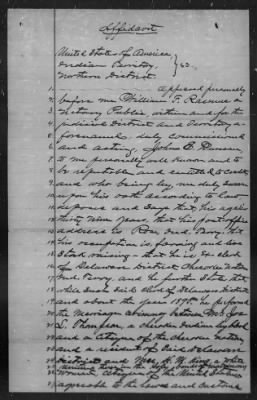 Affidavit
United States of America
Indian Territory, } SS.
Northern District.
1. Appeared personally
2. before me William F. a
3. Notary Public within and for the
4. District and Territory a-
5. foresaid duly commissioned
6. and acting, John E. Duncan
7. to me personally well known and to
8. be reputable and entitled to credit
9. and who being by me duly sworn
10. upon his oath according to law
11. deposes and says that his age is
12. thirty nine years that his post office
13. address is Ind. Terry. that
14. his occupation is farming and
15. Stock raising - that he is Clerk
16. of Delaware District Cherokee Nation
17. Ind. Terry. and he further states that
18. while Clerk of Delaware District
19. and about the year 1895 he performed
20. the Marriage ceremony between Mr. Joe
21. L. Thompson, a Cherokee Indian by blood
22. and a Citizen of the Cherokee Nation
23. and a resident of Delaware
24. District and Miss M. King a white
woman, citizen of the United States
agreeable to the laws and customs